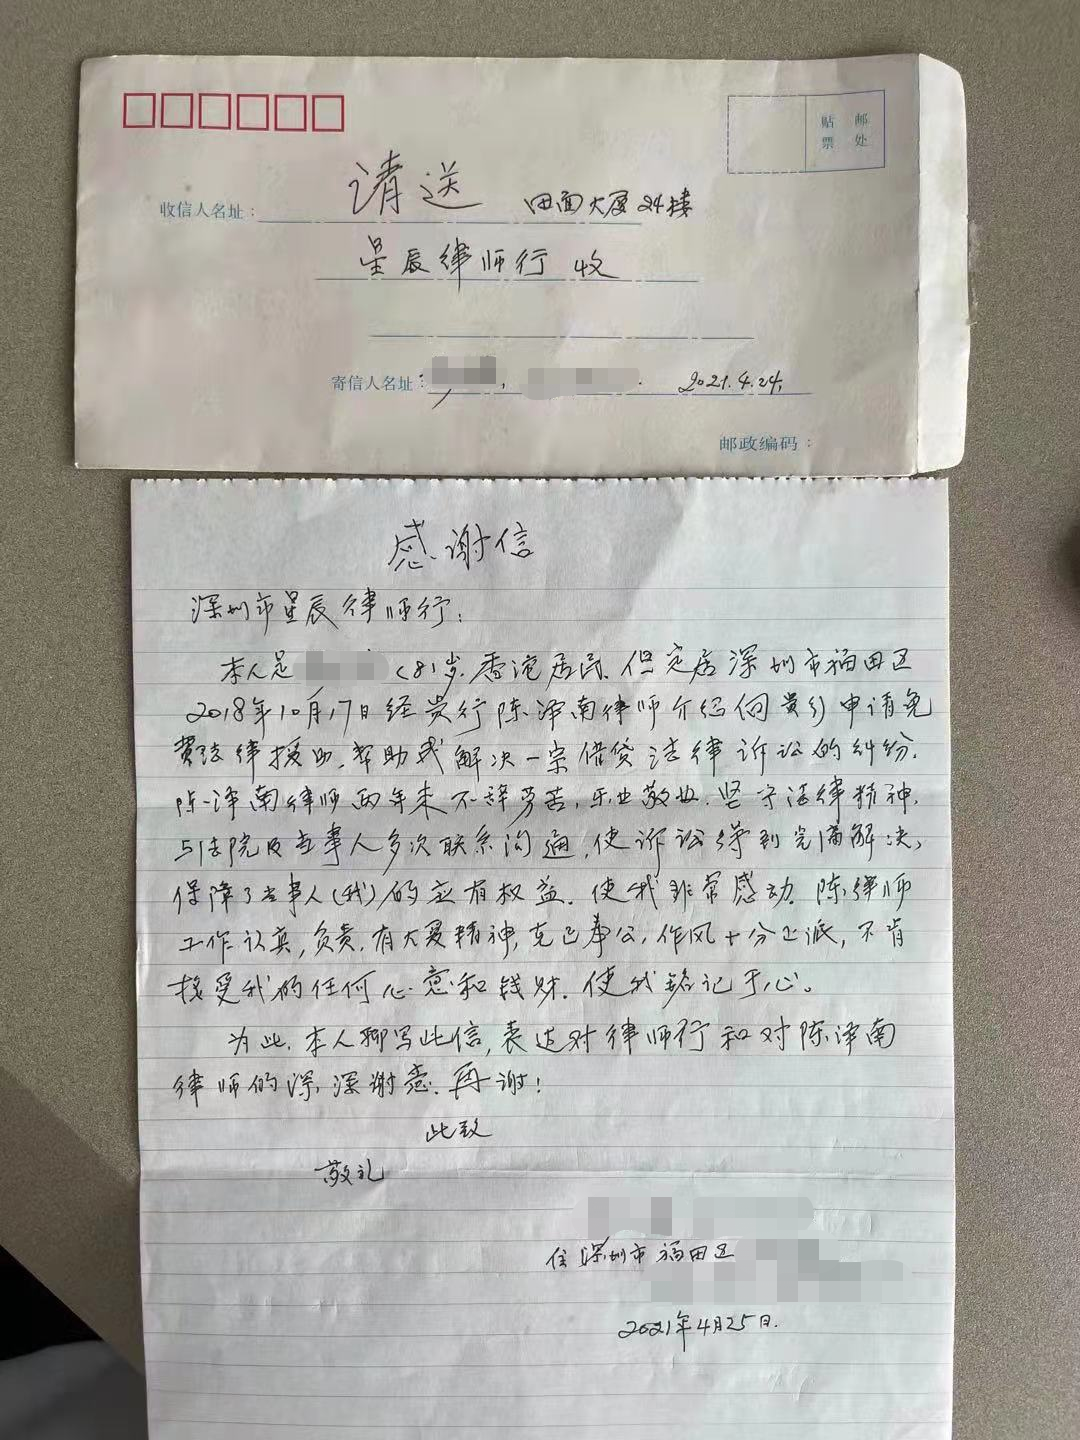 贴 邮
票 处
收信人名址：
请送 田面大厦24楼
星辰律师行 收
寄信人名址： 2021.4.24.
邮政编码：
感谢信
深圳市星辰律师行：
本人是 (81岁.香港居民.但定居深圳市福田区
2018年10月17日经贵行陈泽南律师介绍向贵行申请免
费法律援助.帮助我解决一宗借贷法律诉讼的纠纷.
陈泽南律师两年来不辞劳苦,乐业敬业.坚守法律精神.
与法院及当事人多次联系沟通,使诉讼得到完满解决,
保障了当事人(我)的应有权益.使我非常感动.陈律师
工作认真,负责.有大爱精神,克己奉公,作风十分正派,不肯
接受我的任何心意和钱财.使我铭记于心。
为此.本人聊写此信,表达对律师行和对陈泽南
律师的深深谢意.再谢!
此致
敬礼
住深圳市福田区
2021年4月25日.